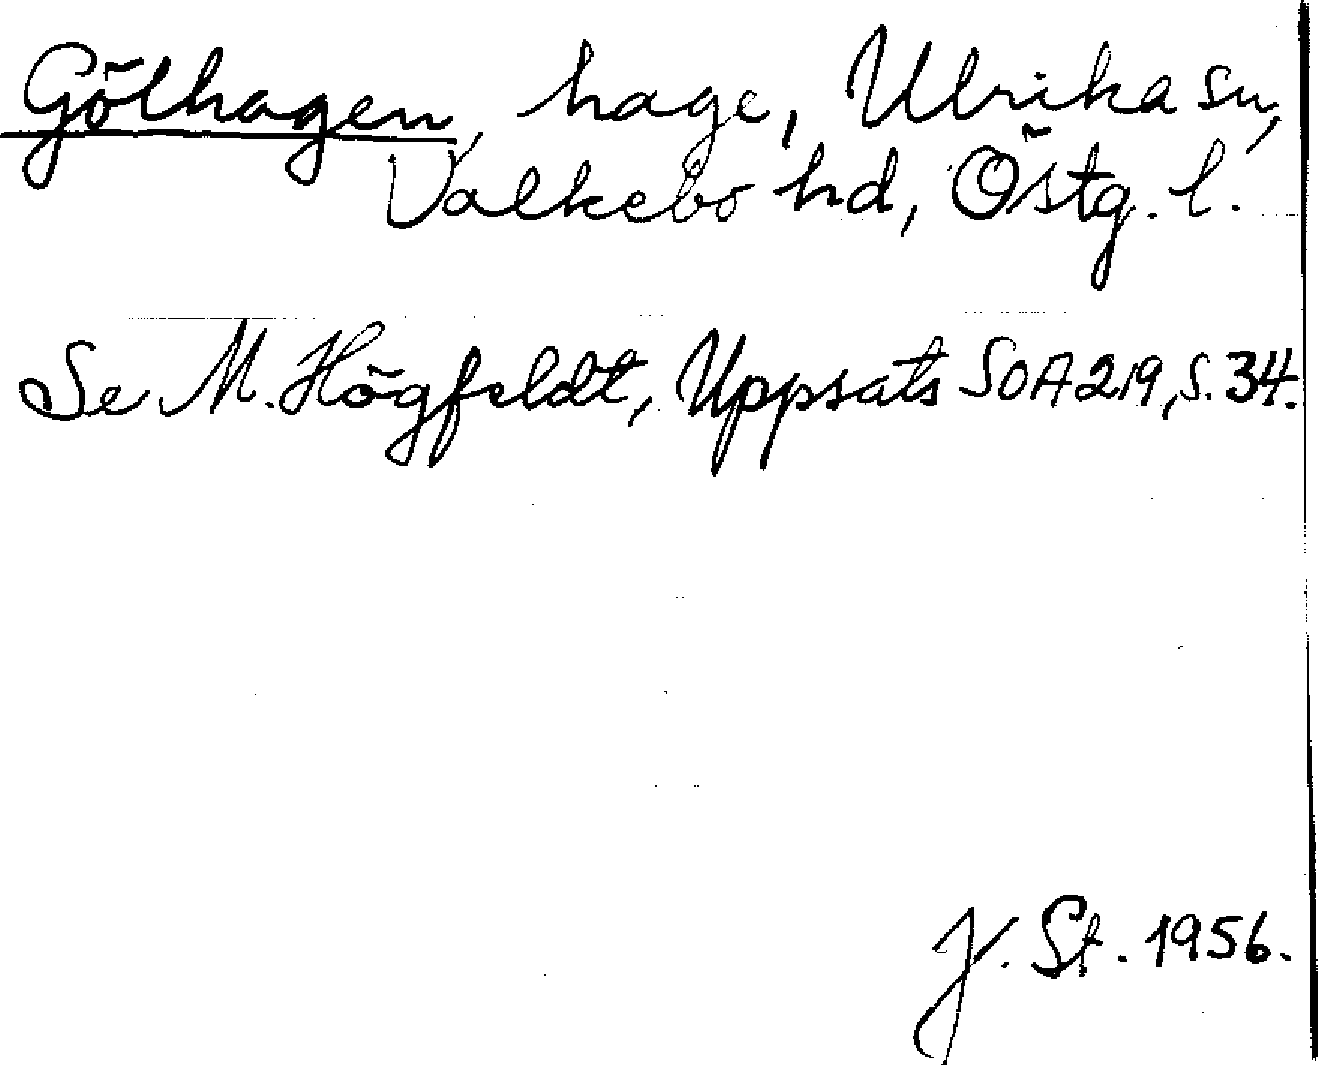 Gölhagen, hage, Ulrika sn,
Valkebo hd, Östg. l.
Se M. Högfeldt, Uppsats SOA 219, s. 34.
J. St. 1956.